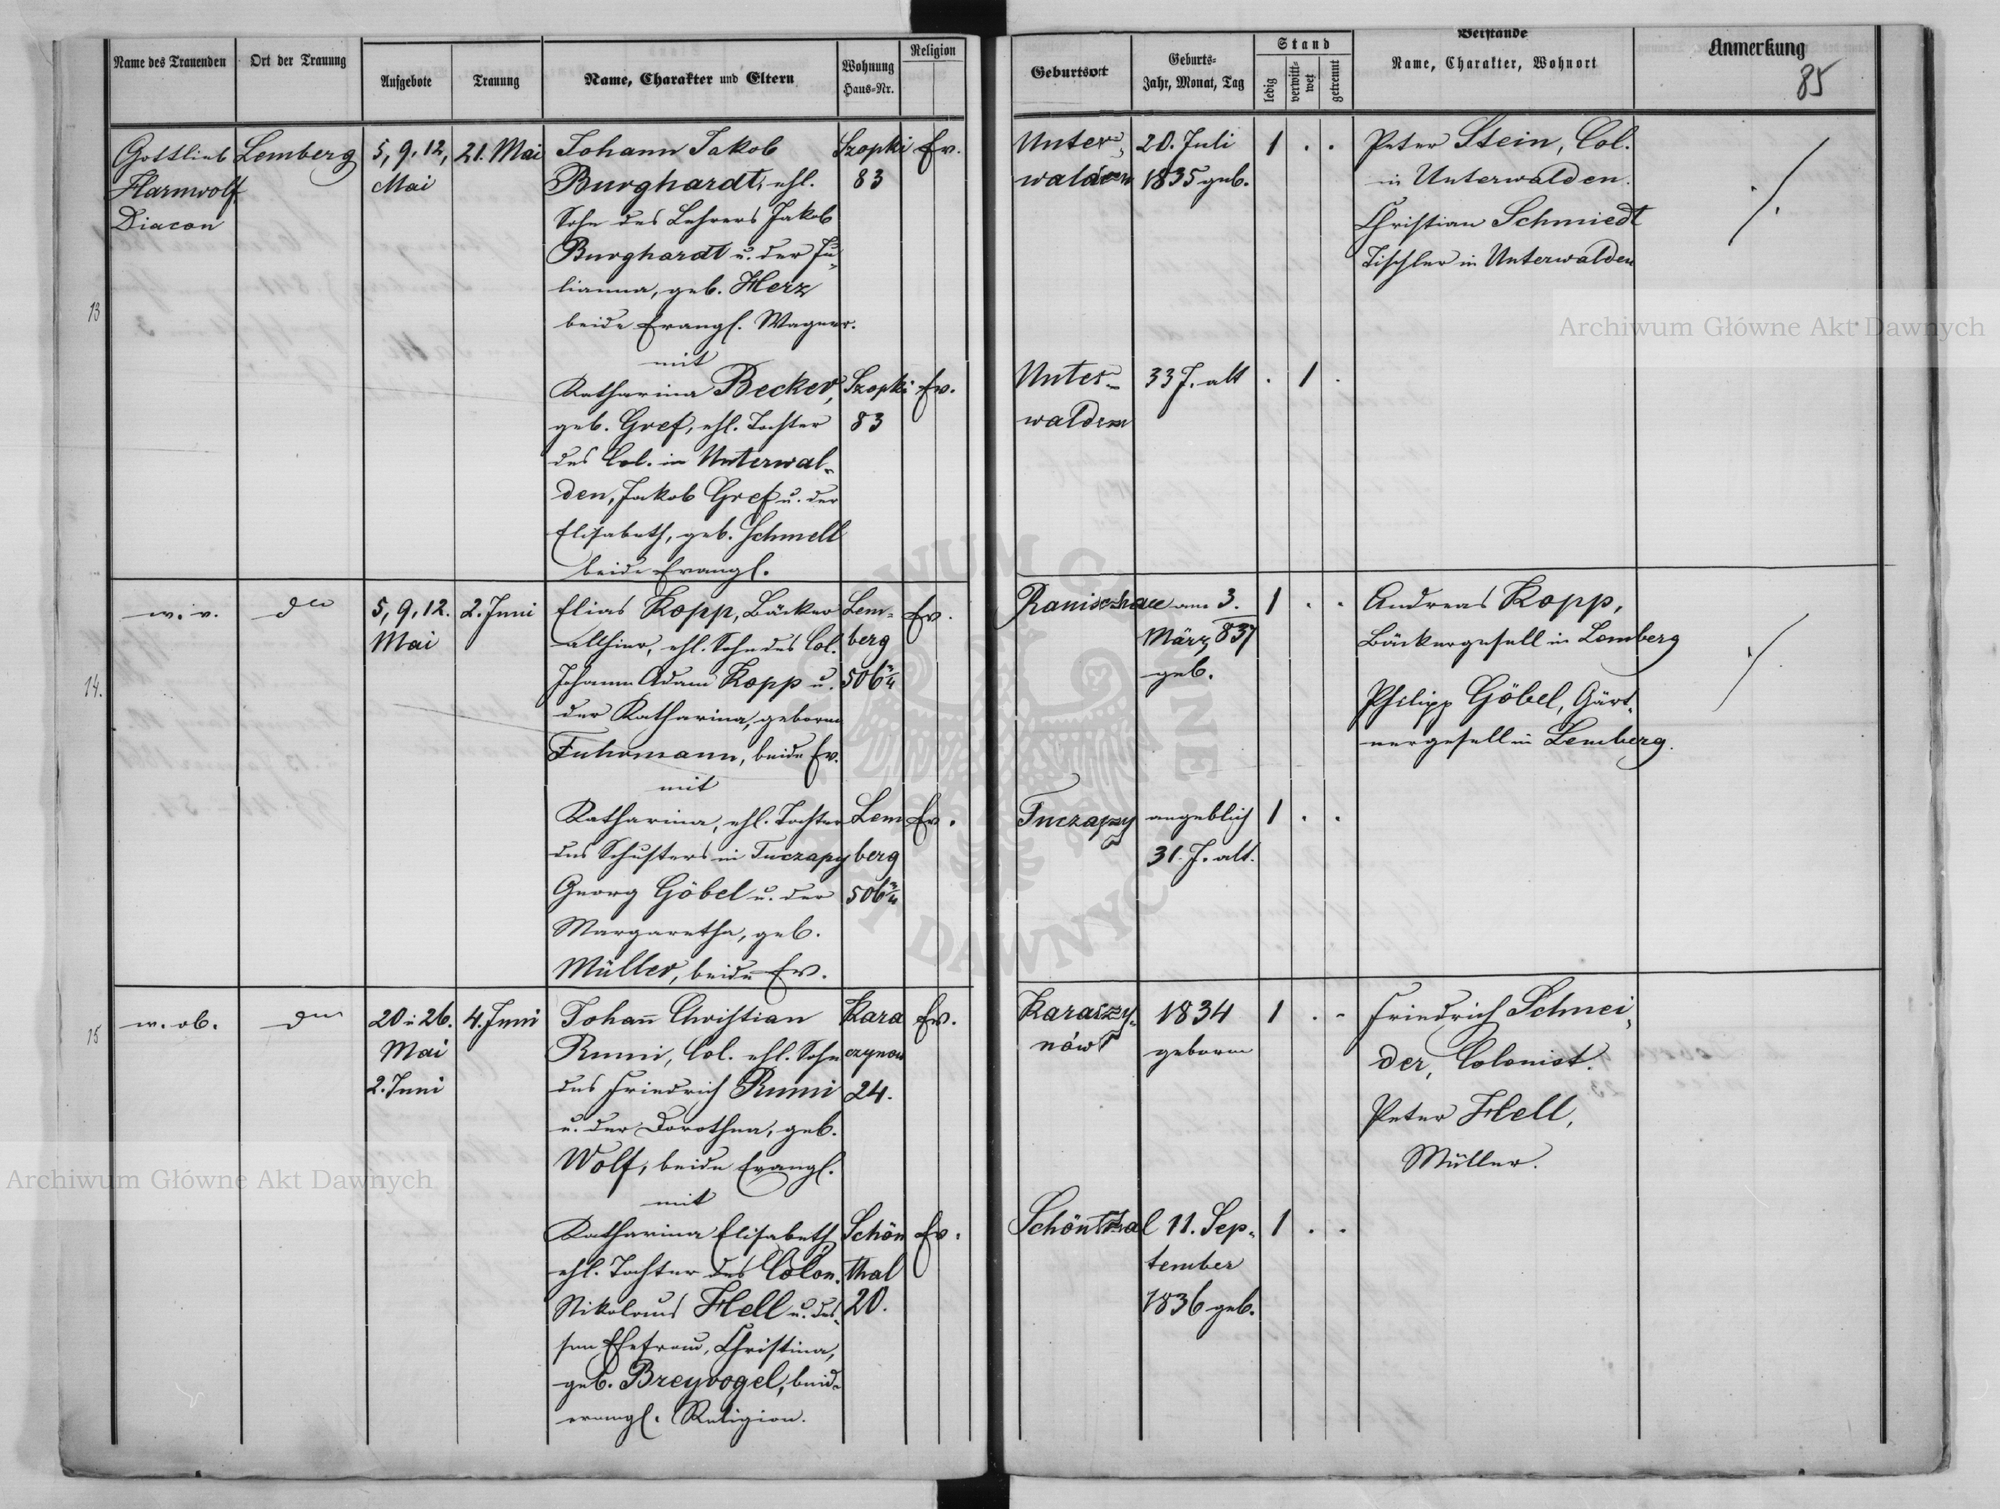 Name des Trauenden
Ort der Trauung
Aufgebote
Trauung
Name, Charakter und Eltern
Wohnung
Haus-Nr.
Religion
Geburtsort
Geburts-
Jahr, Monat, Tag
Stand
ledig
verwitt-
wet
getrennt
Beistände
Name, Charakter, Wohnort
Anmerkung
85
13
Gottlieb
Harmwolf
Diacon
Lemberg
5, 9, 12,
Mai
21. Mai
Johann Jakob
Burghardt, ehl.
Sohn des Lehrers Jakob
Burghardt u. der Ju-
lianna, geb. Herz
beide Evangl. Wagner.
mit
Katharina Becker,
geb. Gref, ehl. Tochter
des Col. in Unterwal-
den, Jakob Gref u. der
Elisabeth, geb. Schmell
beide Evangl.
Szopki
83
Ev.
Szopki
83
Ev.
Unter-
walden
20. Juli
1835 geb.
1 . .
Unter-
walden
33 J. alt
. 1 .
Peter Stein, Col.
in Unterwalden.
Christian Schmiedt
Tischler in Unterwalden
./.
14.
w. v.
dto
5, 9, 12.
Mai
2. Juni
Elias Kopp, Bäcker
allhier, ehl. Sohn des Col.
Johann Adam Kopp u.
der Katharina, geborne
Fuhrmann, beide Ev.
mit
Katharina, ehl. Tochter
des Schusters in Tuczapy
Georg Göbel u. der
Margaretha, geb.
Müller, beide Ev.
Lem-
berg
506 2/4
Ev.
Lem
berg
506 2/4
Ev.
Ranischau
am 3.
März 837
geb.
1 . .
Tuczapy
angeblich
31. J. alt.
1 . .
Andreas Kopp,
Bäckergesell in Lemberg
Philipp Göbel, Gärt-
nergesell in Lemberg.
./.
15
w. ob.
dto
20 u 26.
Mai
2. Juni
4. Juni
Johann Christian
Rumi, Col. ehl. Sohn
des Friedrich Rumi
u. der Dorothea, geb.
Wolf, beide Evangl.
mit
Katharina Elisabeth
ehl. Tochter des Colon.
Nikolaus Hell u. des-
sen Ehefrau, Christina,
geb. Breyvogel, beide
evangl. Religion.
Kara
czynow
24.
Ev.
Schön
thal
20.
Ev.
Karaczy-
nów
1834
geboren
1 . .
Schönthal
11. Sep-
tember
1836 geb.
1 . .
Friedrich Schnei-
der, Colonist.
Peter Hell,
Müller.
Archiwum Główne Akt Dawnych
Archiwum Główne Akt Dawnych